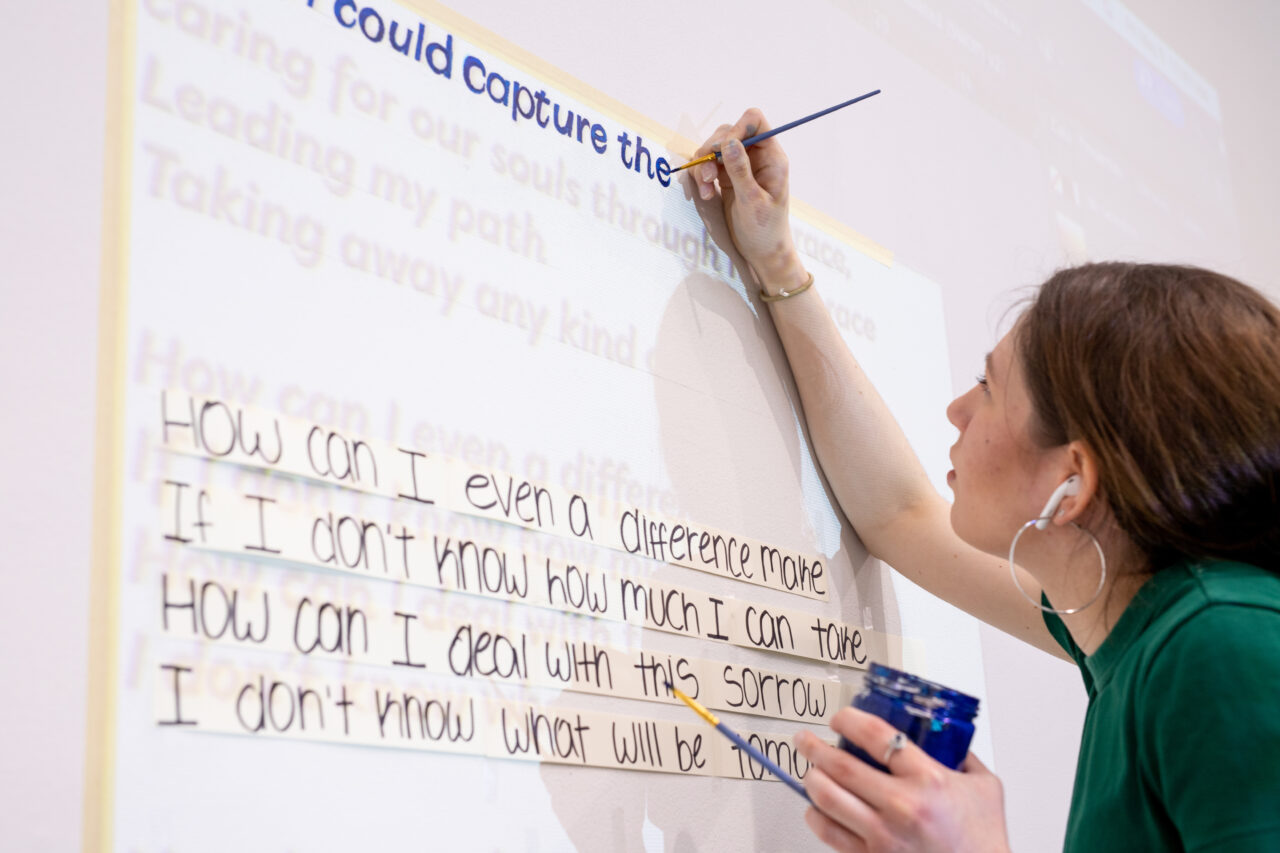 I could capture the
caring for our souls through
Leading my path
Taking away any kind
How can I even a differe
HOW can I even a difference make
If I don't know how much I can take
HOW can I deal with this sorrow
I don't know what will be tomo